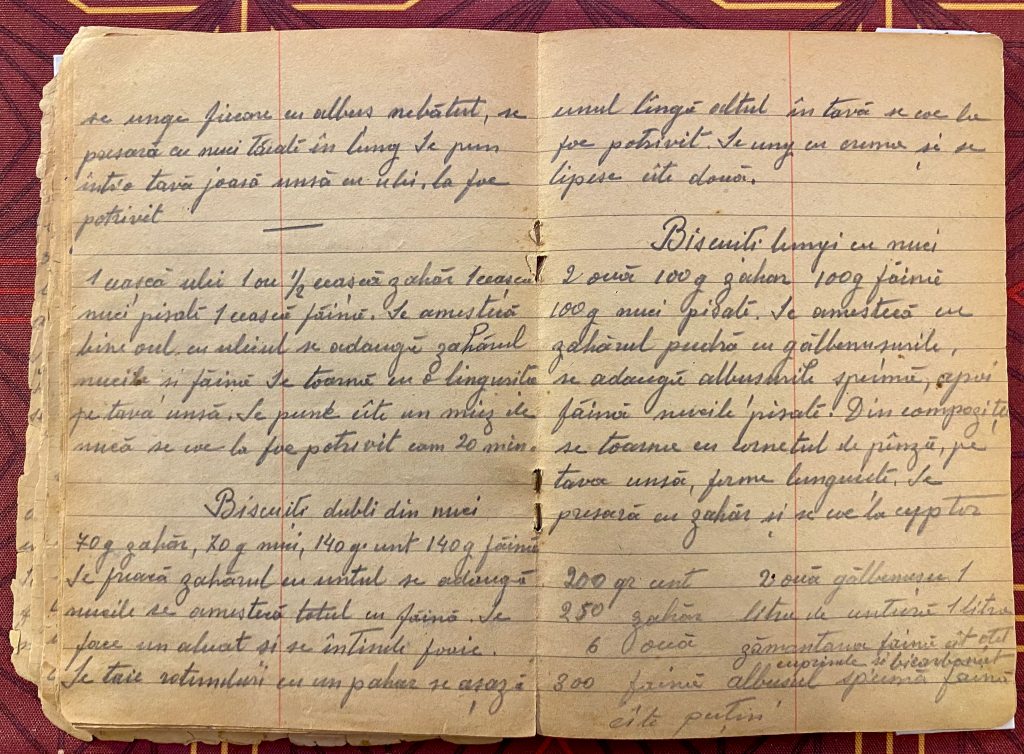 se unge fiecare cu albus nebătut, se
presară cu nuci tăiate în lung Se pun
într'o tavă joasă unsă cu ulei, la foc
potrivit
1 ceașcă ulei 1 ou 1/2 ceașcă zahăr 1 ceașcă
nuci pisate 1 ceașcă făină. Se amestică
bine oul cu uleiul se adaugă zahărul
nucile si făină Se toarnă cu o lingurita
pe tavă unsă. Se pune cîte un miez de
nucă se coc la foc potrivit cam 20 min.
Biscuiti dubli din nuci
70 g zahăr, 70 g nuci, 140 g. unt 140 g făină
Se freacă zahărul cu untul se adaugă
nucile se amestică totul cu faină. Se
face un aluat si se întinde foaie.
Se taie rotunduri cu un pahar se așază
unul lîngă altul în tavă se coc la
foc potrivit. Se ung cu crema și se
lipesc cîte două.
Biscuiti lungi cu nuci
2 ouă 100 g zahar 100 g făină
100 g nuci pisate. Se amestică cu
zahărul pudră cu gălbenusurile,
se adaugă albusurile spumă, apoi
făină nucile pisate. Din compoziție
se toarnă cu cornetul de pînză, pe
tava unsă, forme lunguiete. Se
presară cu zahăr și se coc la cuptor
200 gr unt 2 ouă gălbenusu 1
250 zahăr litru de untură 1 litru
6 ouă făină cît
si bicarbonat
300 faină albusul spumă faină
cîte puțin